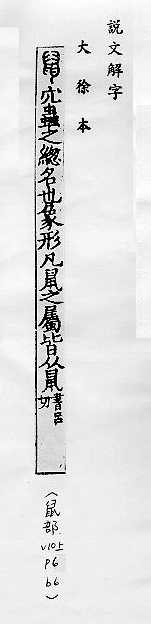 説文解字
大徐本
鼠穴蟲之緫名也象形凡鼠之屬皆从鼠書呂切
(鼠部 v10上 p6 b6)